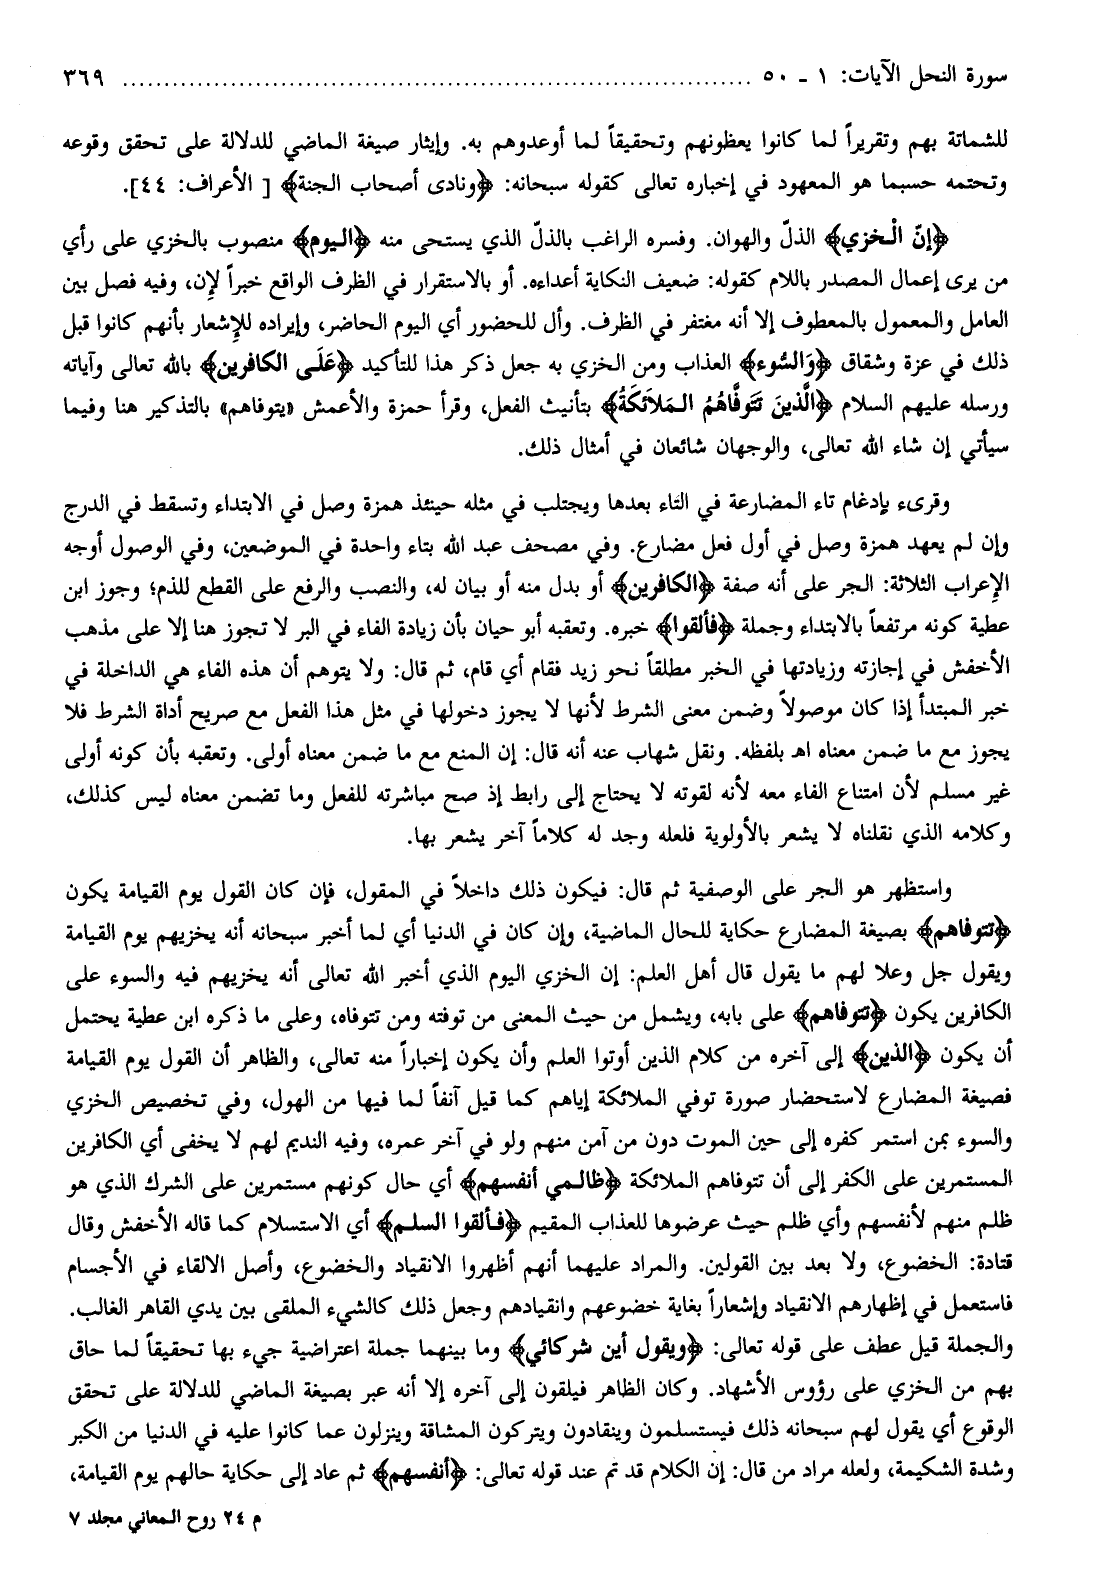 سورة النحل الآيات: ١ - ٥٠ ........................................................................ ٣٦٩
للشماتة بهم وتقريراً لما كانوا يعظونهم وتحقيقاً لما أوعدوهم به. وإيثار صيغة الماضي للدلالة على تحقق وقوعه
وتحتمه حسبما هو المعهود في إخباره تعالى كقوله سبحانه: ﴿ونادى أصحاب الجنة﴾ [ الأعراف: ٤٤].
﴿إنّ الْخزي﴾ الذلّ والهوان. وفسره الراغب بالذلّ الذي يستحى منه ﴿اليوم﴾ منصوب بالخزي على رأي
من يرى إعمال المصدر باللام كقوله: ضعيف النكاية أعداءه. أو بالاستقرار في الظرف الواقع خبراً لإن، وفيه فصل بين
العامل والمعمول بالمعطوف إلا أنه مغتفر في الظرف. وأل للحضور أي اليوم الحاضر، وإيراده للإشعار بأنهم كانوا قبل
ذلك في عزة وشقاق ﴿وَالسُّوء﴾ العذاب ومن الخزي به جعل ذكر هذا للتأكيد ﴿عَلَى الكافرين﴾ بالله تعالى وآياته
ورسله عليهم السلام ﴿الَّذينَ تَتَوفَّاهُمُ المَلاَئكَةُ﴾ بتأنيث الفعل، وقرأ حمزة والأعمش «يتوفاهم» بالتذكير هنا وفيما
سيأتي إن شاء الله تعالى، والوجهان شائعان في أمثال ذلك.
وقرىء بإدغام تاء المضارعة في التاء بعدها ويجتلب في مثله حينئذ همزة وصل في الابتداء وتسقط في الدرج
وإن لم يعهد همزة وصل في أول فعل مضارع. وفي مصحف عبد الله بتاء واحدة في الموضعين، وفي الوصول أوجه
الإعراب الثلاثة: الجر على أنه صفة ﴿الكافرين﴾ أو بدل منه أو بيان له، والنصب والرفع على القطع للذم؛ وجوز ابن
عطية كونه مرتفعاً بالابتداء وجملة ﴿فألقوا﴾ خبره. وتعقبه أبو حيان بأن زيادة الفاء في البر لا تجوز هنا إلا على مذهب
الأخفش في إجازته وزيادتها في الخبر مطلقاً نحو زيد فقام أي قام، ثم قال: ولا يتوهم أن هذه الفاء هي الداخلة في
خبر المبتدأ إذا كان موصولاً وضمن معنى الشرط لأنها لا يجوز دخولها في مثل هذا الفعل مع صريح أداة الشرط فلا
يجوز مع ما ضمن معناه اهـ بلفظه. ونقل شهاب عنه أنه قال: إن المنع مع ما ضمن معناه أولى. وتعقبه بأن كونه أولى
غير مسلم لأن امتناع الفاء معه لأنه لقوته لا يحتاج إلى رابط إذ صح مباشرته للفعل وما تضمن معناه ليس كذلك،
وكلامه الذي نقلناه لا يشعر بالأولوية فلعله وجد له كلاماً آخر يشعر بها.
واستظهر هو الجر على الوصفية ثم قال: فيكون ذلك داخلاً في المقول، فإن كان القول يوم القيامة يكون
﴿تتوفاهم﴾ بصيغة المضارع حكاية للحال الماضية، وإن كان في الدنيا أي لما أخبر سبحانه أنه يخزيهم يوم القيامة
ويقول جل وعلا لهم ما يقول قال أهل العلم: إن الخزي اليوم الذي أخبر الله تعالى أنه يخزيهم فيه والسوء على
الكافرين يكون ﴿تتوفاهم﴾ على بابه، ويشمل من حيث المعنى من توفته ومن تتوفاه، وعلى ما ذكره ابن عطية يحتمل
أن يكون ﴿الذين﴾ إلى آخره من كلام الذين أوتوا العلم وأن يكون إخباراً منه تعالى، والظاهر أن القول يوم القيامة
فصيغة المضارع لاستحضار صورة توفي الملائكة إياهم كما قيل آنفاً لما فيها من الهول، وفي تخصيص الخزي
والسوء بمن استمر كفره إلى حين الموت دون من آمن منهم ولو في آخر عمره، وفيه النديم لهم لا يخفى أي الكافرين
المستمرين على الكفر إلى أن تتوفاهم الملائكة ﴿ظالمي أنفسهم﴾ أي حال كونهم مستمرين على الشرك الذي هو
ظلم منهم لأنفسهم وأي ظلم حيث عرضوها للعذاب المقيم ﴿فألقوا السلم﴾ أي الاستسلام كما قاله الأخفش وقال
قتادة: الخضوع، ولا بعد بين القولين. والمراد عليهما أنهم أظهروا الانقياد والخضوع، وأصل الالقاء في الأجسام
فاستعمل في إظهارهم الانقياد وإشعاراً بغاية خضوعهم وانقيادهم وجعل ذلك كالشيء الملقى بين يدي القاهر الغالب.
والجملة قيل عطف على قوله تعالى: ﴿ويقول أين شركائي﴾ وما بينهما جملة اعتراضية جيء بها تحقيقاً لما حاق
بهم من الخزي على رؤوس الأشهاد. وكان الظاهر فيلقون إلى آخره إلا أنه عبر بصيغة الماضي للدلالة على تحقق
الوقوع أي يقول لهم سبحانه ذلك فيستسلمون وينقادون ويتركون المشاقة وينزلون عما كانوا عليه في الدنيا من الكبر
وشدة الشكيمة، ولعله مراد من قال: إن الكلام قد تم عند قوله تعالى: ﴿أنفسهم﴾ ثم عاد إلى حكاية حالهم يوم القيامة،
م ٢٤ روح المعاني مجلد ٧